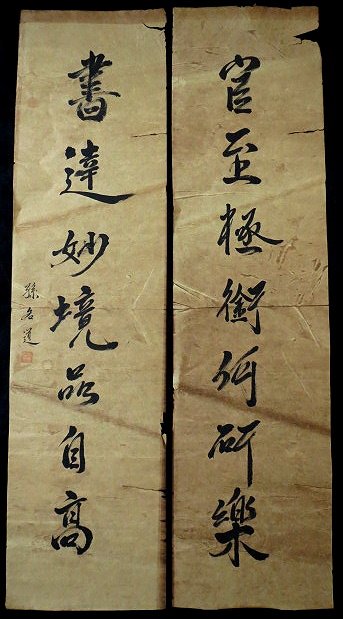 官至極銜何所樂
書達妙境品自高
孫名道